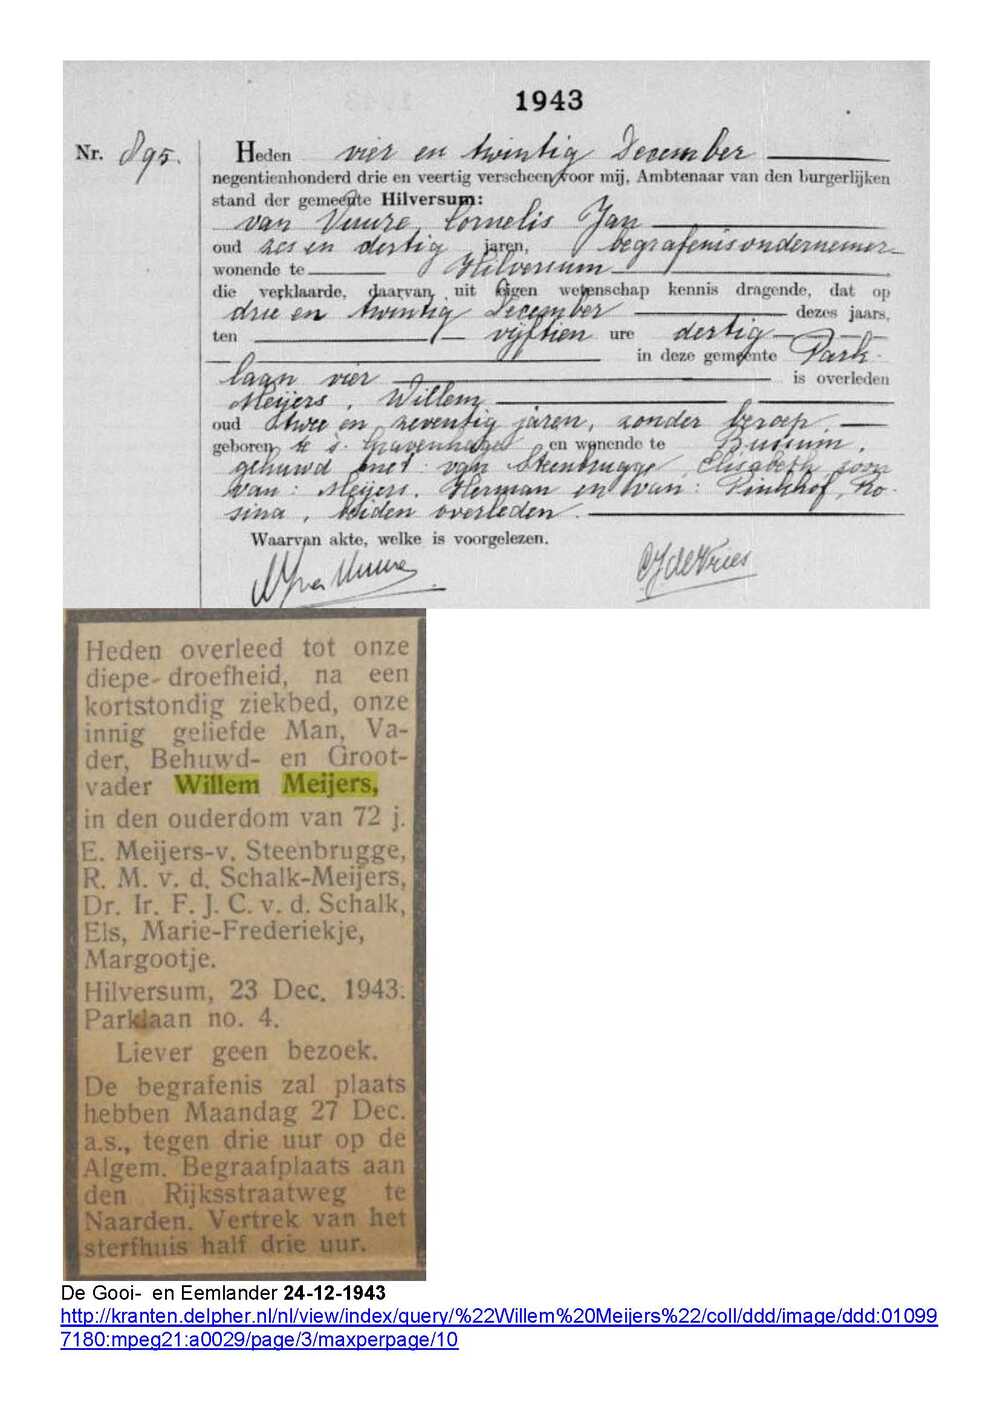 1943
Nr. 895.
Heden vier en twintig December
negentienhonderd drie en veertig verscheen voor mij, Ambtenaar van den burgerlijken
stand der gemeente Hilversum:
van Vuure, Cornelis Jan
oud zes en dertig jaren, begrafenisondernemer
wonende te Hilversum
die verklaarde, daarvan uit eigen wetenschap kennis dragende, dat op
drie en twintig December dezes jaars,
ten vijftien ure dertig
in deze gemeente Park-
laan vier is overleden
Meijers, Willem
oud twee en zeventig jaren, zonder beroep,
geboren te 's Gravenhage en wonende te Bussum,
gehuwd met: van Steenbrugge, Elisabeth zoon
van: Meijers, Herman en van: Pinkhof, Ro-
sina, beiden overleden.
Waarvan akte, welke is voorgelezen.
CJvan Vuure CJ de Vries
Heden overleed tot onze
diepe droefheid, na een
kortstondig ziekbed, onze
innig geliefde Man, Va-
der, Behuwd- en Groot-
vader Willem Meijers,
in den ouderdom van 72 j.
E. Meijers-v. Steenbrugge,
R. M. v. d. Schalk-Meijers,
Dr. Ir. F. J. C. v. d. Schalk,
Els, Marie-Frederiekje,
Margootje.
Hilversum, 23 Dec. 1943.
Parklaan no. 4.
Liever geen bezoek.
De begrafenis zal plaats
hebben Maandag 27 Dec.
a.s., tegen drie uur op de
Algem. Begraafplaats aan
den Rijksstraatweg te
Naarden. Vertrek van het
sterfhuis half drie uur.
De Gooi- en Eemlander 24-12-1943
http://kranten.delpher.nl/nl/view/index/query/%22Willem%20Meijers%22/coll/ddd/image/ddd:01099
7180:mpeg21:a0029/page/3/maxperpage/10